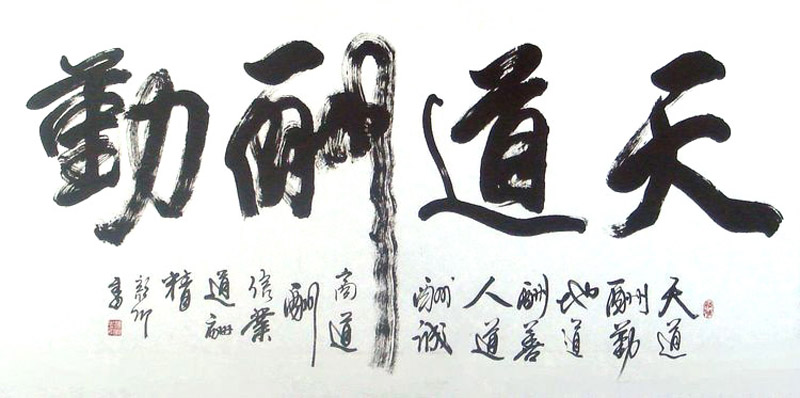 天道酬勤
天道
酬勤
地道
酬善
人道
酬诚
商道
酬
信業
道酬
精
书